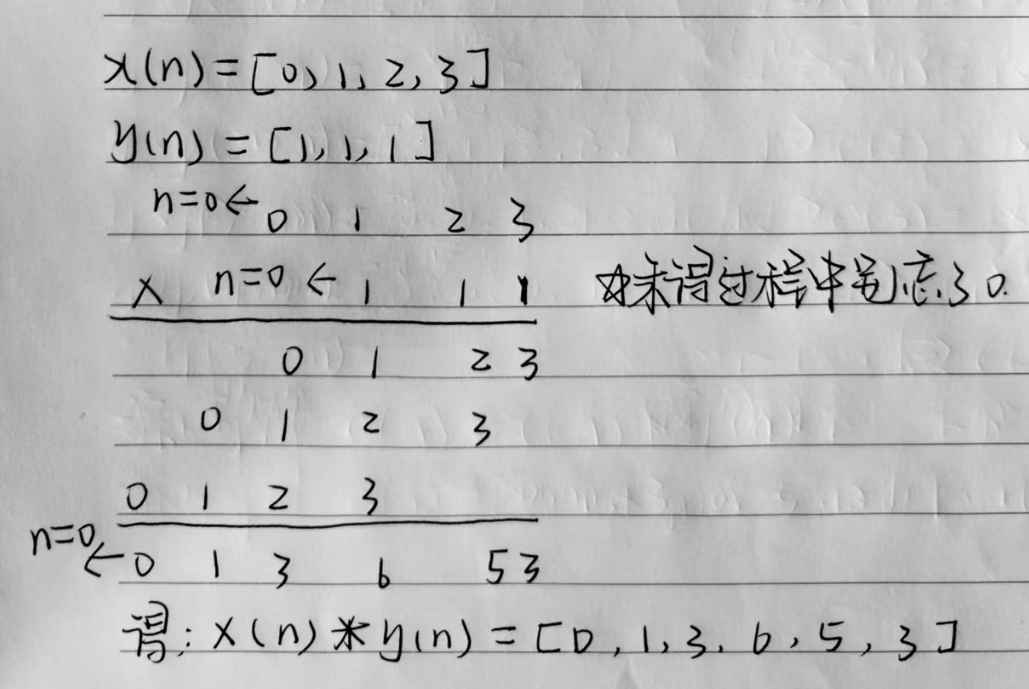 x(n)=[0,1,2,3]
y(n)=[1,1,1]
n=0← 0 1 2 3
× n=0← 1 1 1 ☆求得过程中别忘了0.
0 1 2 3
0 1 2 3
0 1 2 3
n=0← 0 1 3 6 5 3
得: x(n)*y(n)=[0,1,3,6,5,3]